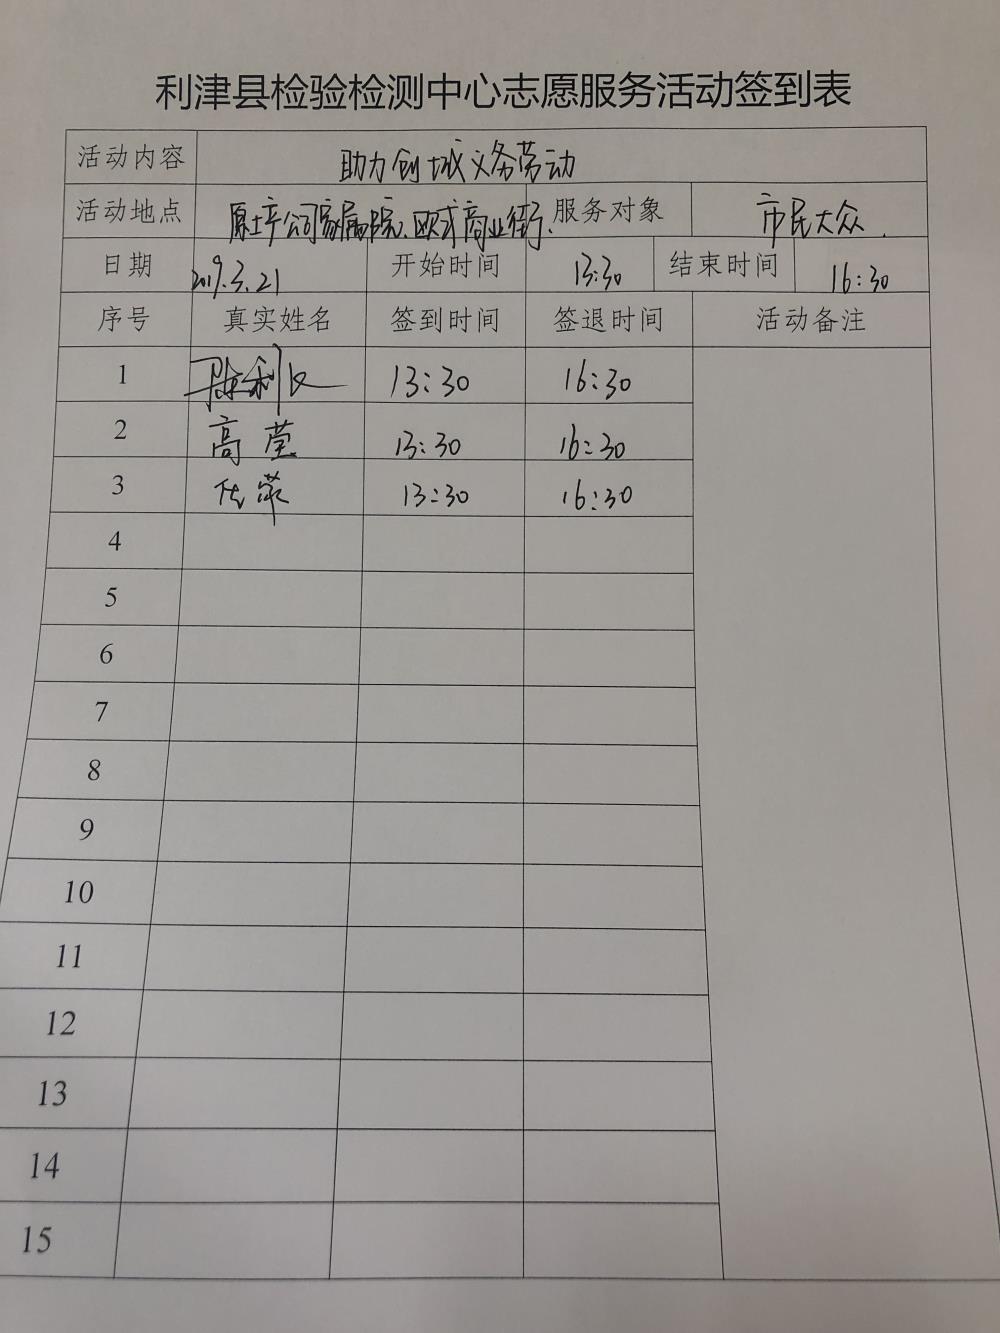 利津县检验检测中心志愿服务活动签到表
活动内容 助力创城义务劳动
活动地点 原土产公司家属院、欧式商业街、 服务对象 市民大众.
日期 2019.3.21 开始时间 13:30 结束时间 16:30
序号 真实姓名 签到时间 签退时间 活动备注
1 13:30 16:30
2 高莹 13:30 16:30
3 13:30 16:30
4
5
6
7
8
9
10
11
12
13
14
15